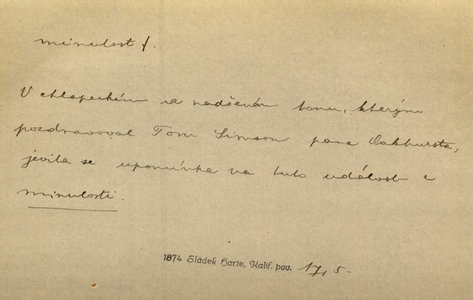 minulost f.
V chlapeckém a nadšeném tonu, kterým
pozdravoval Tom Simson pana Oakhursta,
jevila se upomínka na tuto událost z
minulosti.
1874 Sládek Harte, Kalif. pov. 17, 5.